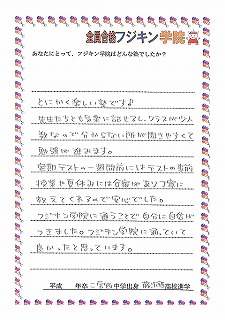 全員合格フジキン学院
あなたにとって、フジキン学院はどんな塾でしたか？
とにかく楽しい塾です♪
先生たちとも気楽に話せるし、クラスが少人
数なので分からない所が聞きやすくて
勉強が進みます。
定期テストの一週間前にはテストの事前
授業や夏休みには合宿がありて寧に
教えてくれるので安心でした。
フジキン学院に通うことで自分に自信が
つきました。フジキン学院に通っていて
良かったと思っています。
平成 年卒 二宮西中学出身 藤沢西高校進学